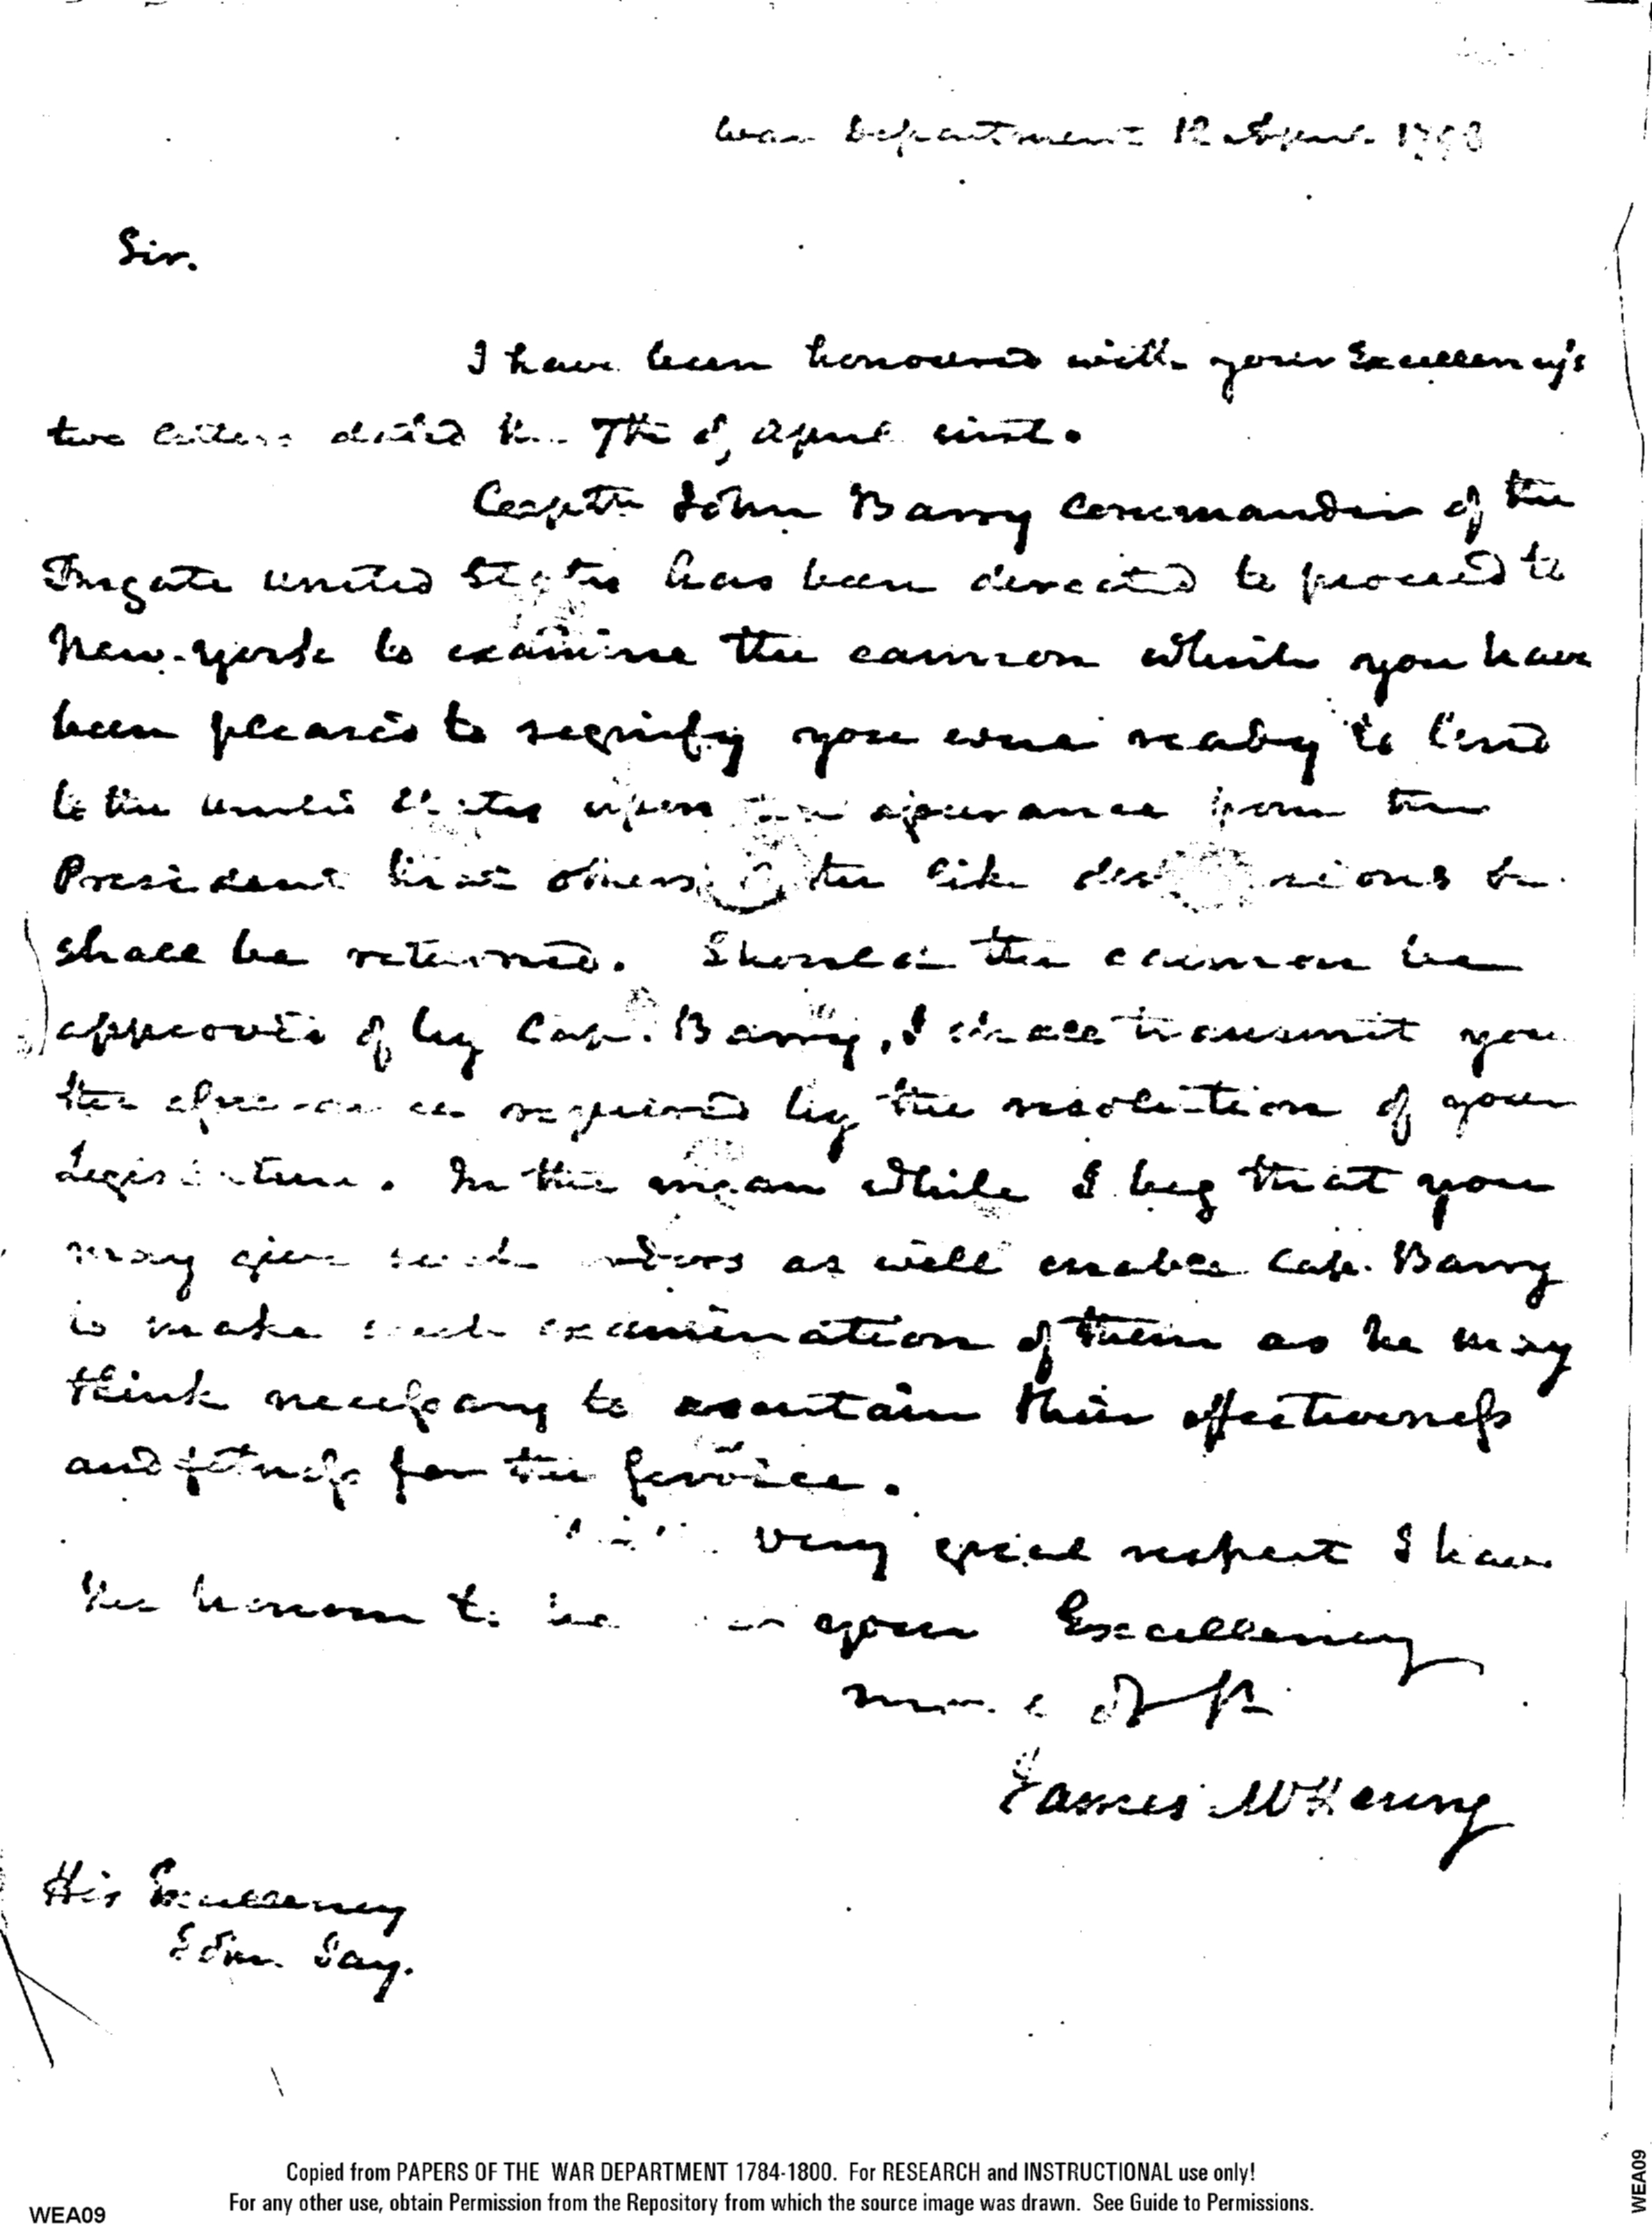 War Department 12 April 1798
Sir.
I have been honoured with your Excellency's
two letters dated the 7th of April inst.
Captn John Barry Commander of the
Frigate united States has been directed to proceed to
New-york to examine the cannon which you have
been pleased to signify you were ready to lend
to the United States upon an assurance from the
President that others of the like dimensions
shall be returned. Should the cannon be
approved of by Cap. Barry, I shall transmit you
the assurance required by the resolution of your
Legislature. In the mean while I beg that you
may give such orders as will enable Cap. Barry
to make such examination of them as he may
think necessary to ascertain their effectiveness
and fitness for the service.
With very great respect I have
the honour to be your Excellency
James McHenry
His Excellency
John Jay.
Copied from PAPERS OF THE WAR DEPARTMENT 1784-1800. For RESEARCH and INSTRUCTIONAL use only!
For any other use, obtain Permission from the Repository from which the source image was drawn. See Guide to Permissions.
WEA09
WEA09